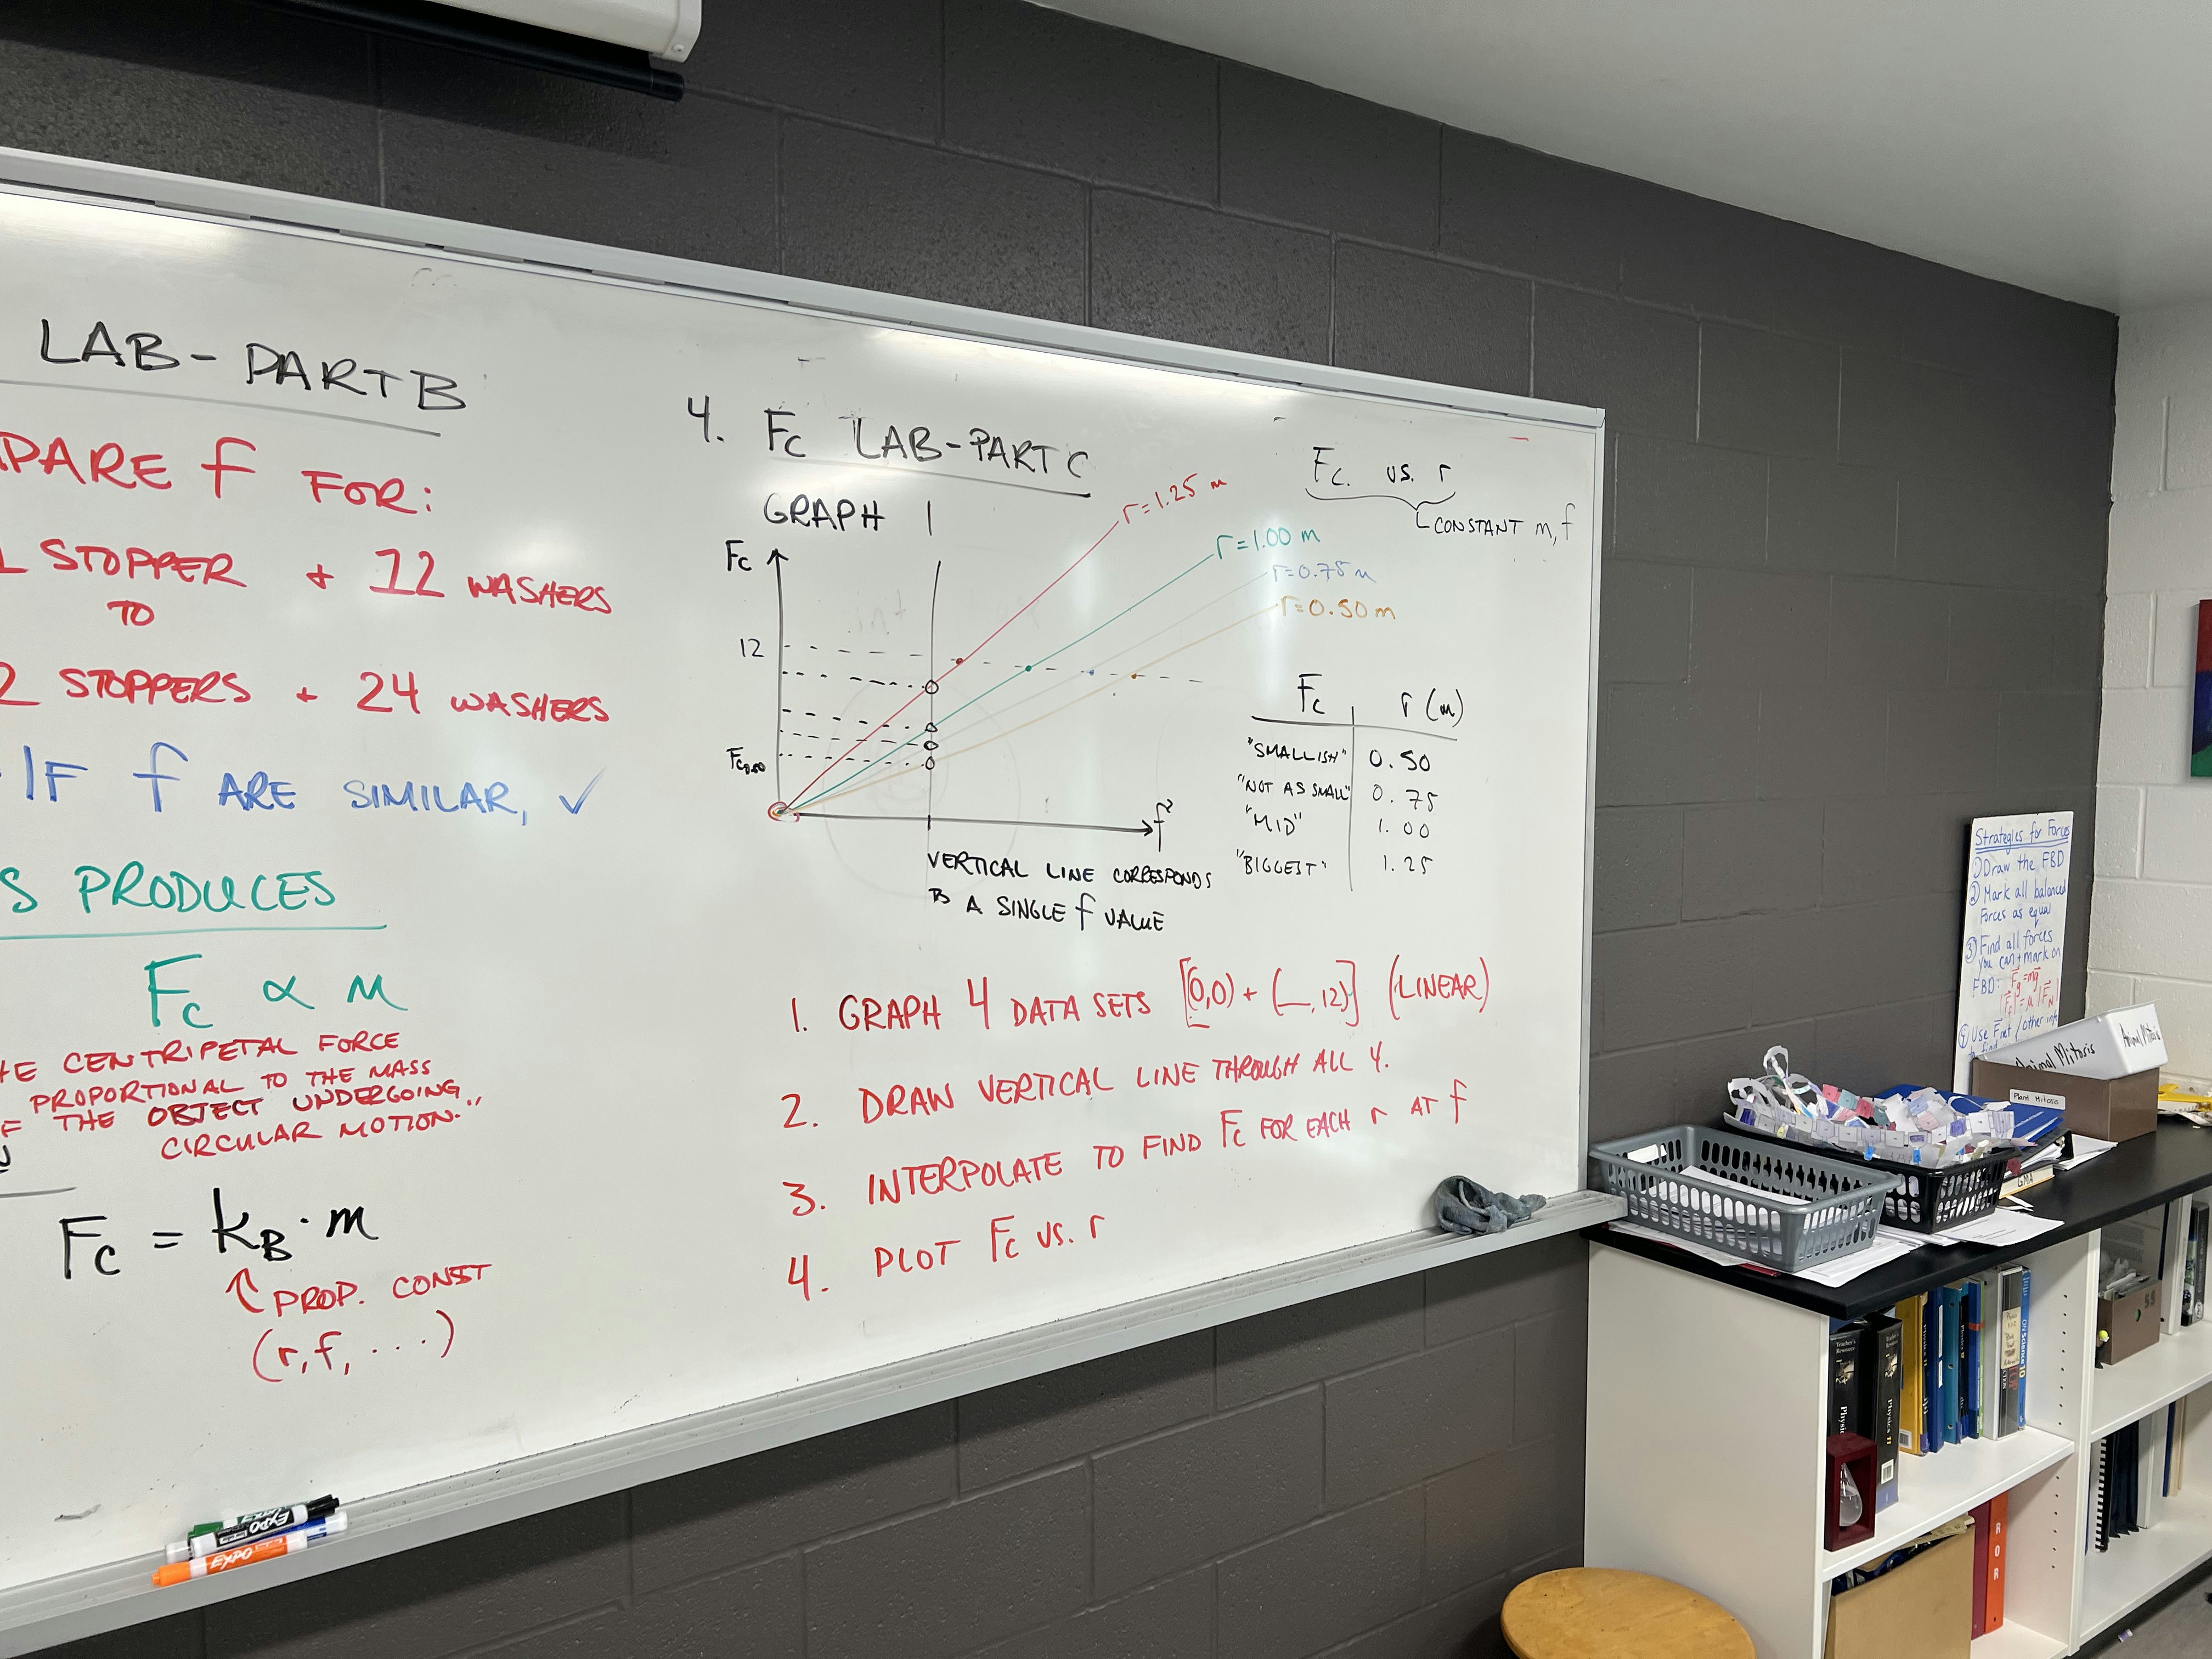 LAB - PART B
PARE f FOR:
STOPPER + 12 WASHERS
TO
2 STOPPERS + 24 WASHERS
IF f ARE SIMILAR, ✓
S PRODUCES
Fc ∝ M
HE CENTRIPETAL FORCE
PROPORTIONAL TO THE MASS
F THE OBJECT UNDERGOING
CIRCULAR MOTION."
Fc = kB · m
PROP. CONST
(r, f, ...)
4. Fc LAB - PART C
GRAPH 1
Fc
12
Fc0.50
f²
r = 1.25 m
r = 1.00 m
r = 0.75 m
r = 0.50 m
VERTICAL LINE CORRESPONDS
TO A SINGLE f VALUE
Fc vs. r
CONSTANT m, f
Fc r (m)
"SMALLISH" 0.50
"NOT AS SMALL" 0.75
"MID" 1.00
"BIGGEST" 1.25
1. GRAPH 4 DATA SETS [(0,0) + (__, 12)] (LINEAR)
2. DRAW VERTICAL LINE THROUGH ALL 4.
3. INTERPOLATE TO FIND Fc FOR EACH r AT f
4. PLOT Fc vs. r
Strategies for Forces
① Draw the FBD
② Mark all balanced
Forces as equal
③ Find all forces
you can + mark on
FBD: Fg = mg
④ Use Fnet / other info
to find
Animal Mitosis
Animal Mitosis
Plant Mitosis
GMA
EXPO
EXPO
Teacher's
Resource
Physics
Physics 11
ON Science 10
SS
ROR